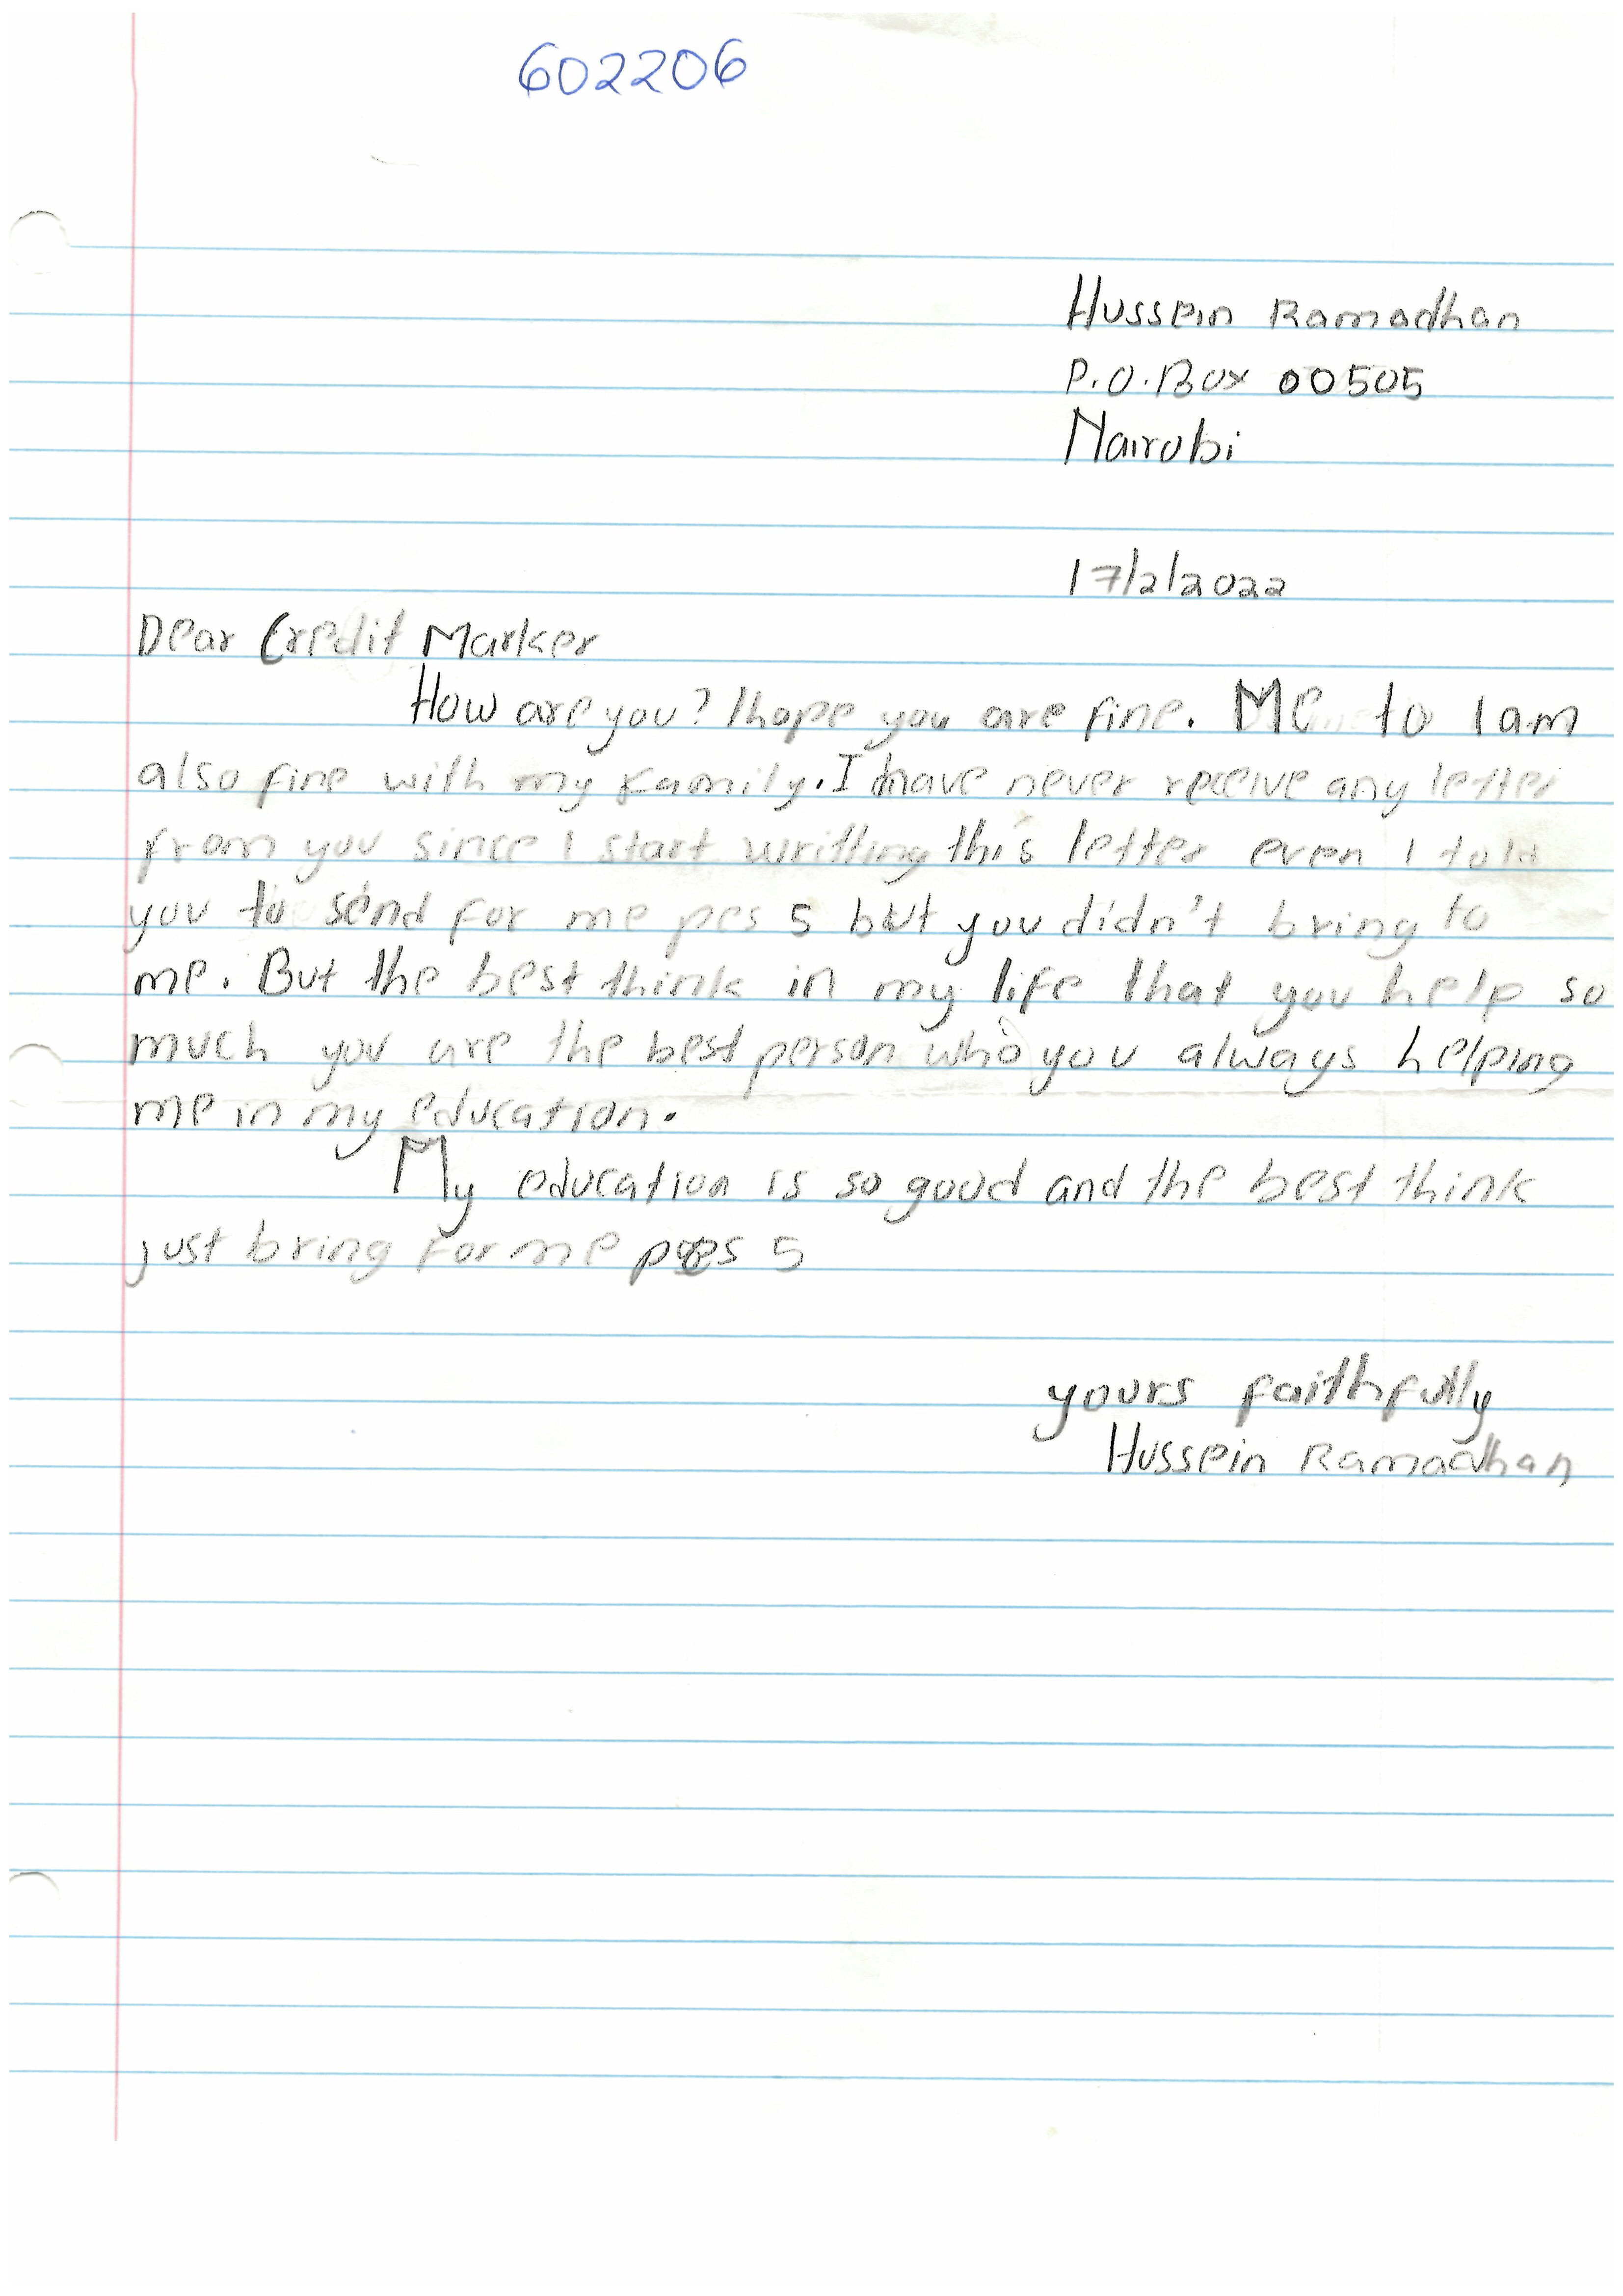 602206
Hussein Ramadhan
P.O.Box 00505
Nairobi
17/2/2022
Dear Credit Marker
How are you? I hope you are fine. Me to I am
also fine with my family. I have never receive any letter
from you since I start writting this letter even I told
you to send for me pes 5 but you didn't bring to
me. But the best think in my life that you help so
much you are the best person who you always helping
me in my education.
My education is so good and the best think
just bring for me pes 5
yours faithfully
Hussein Ramadhan